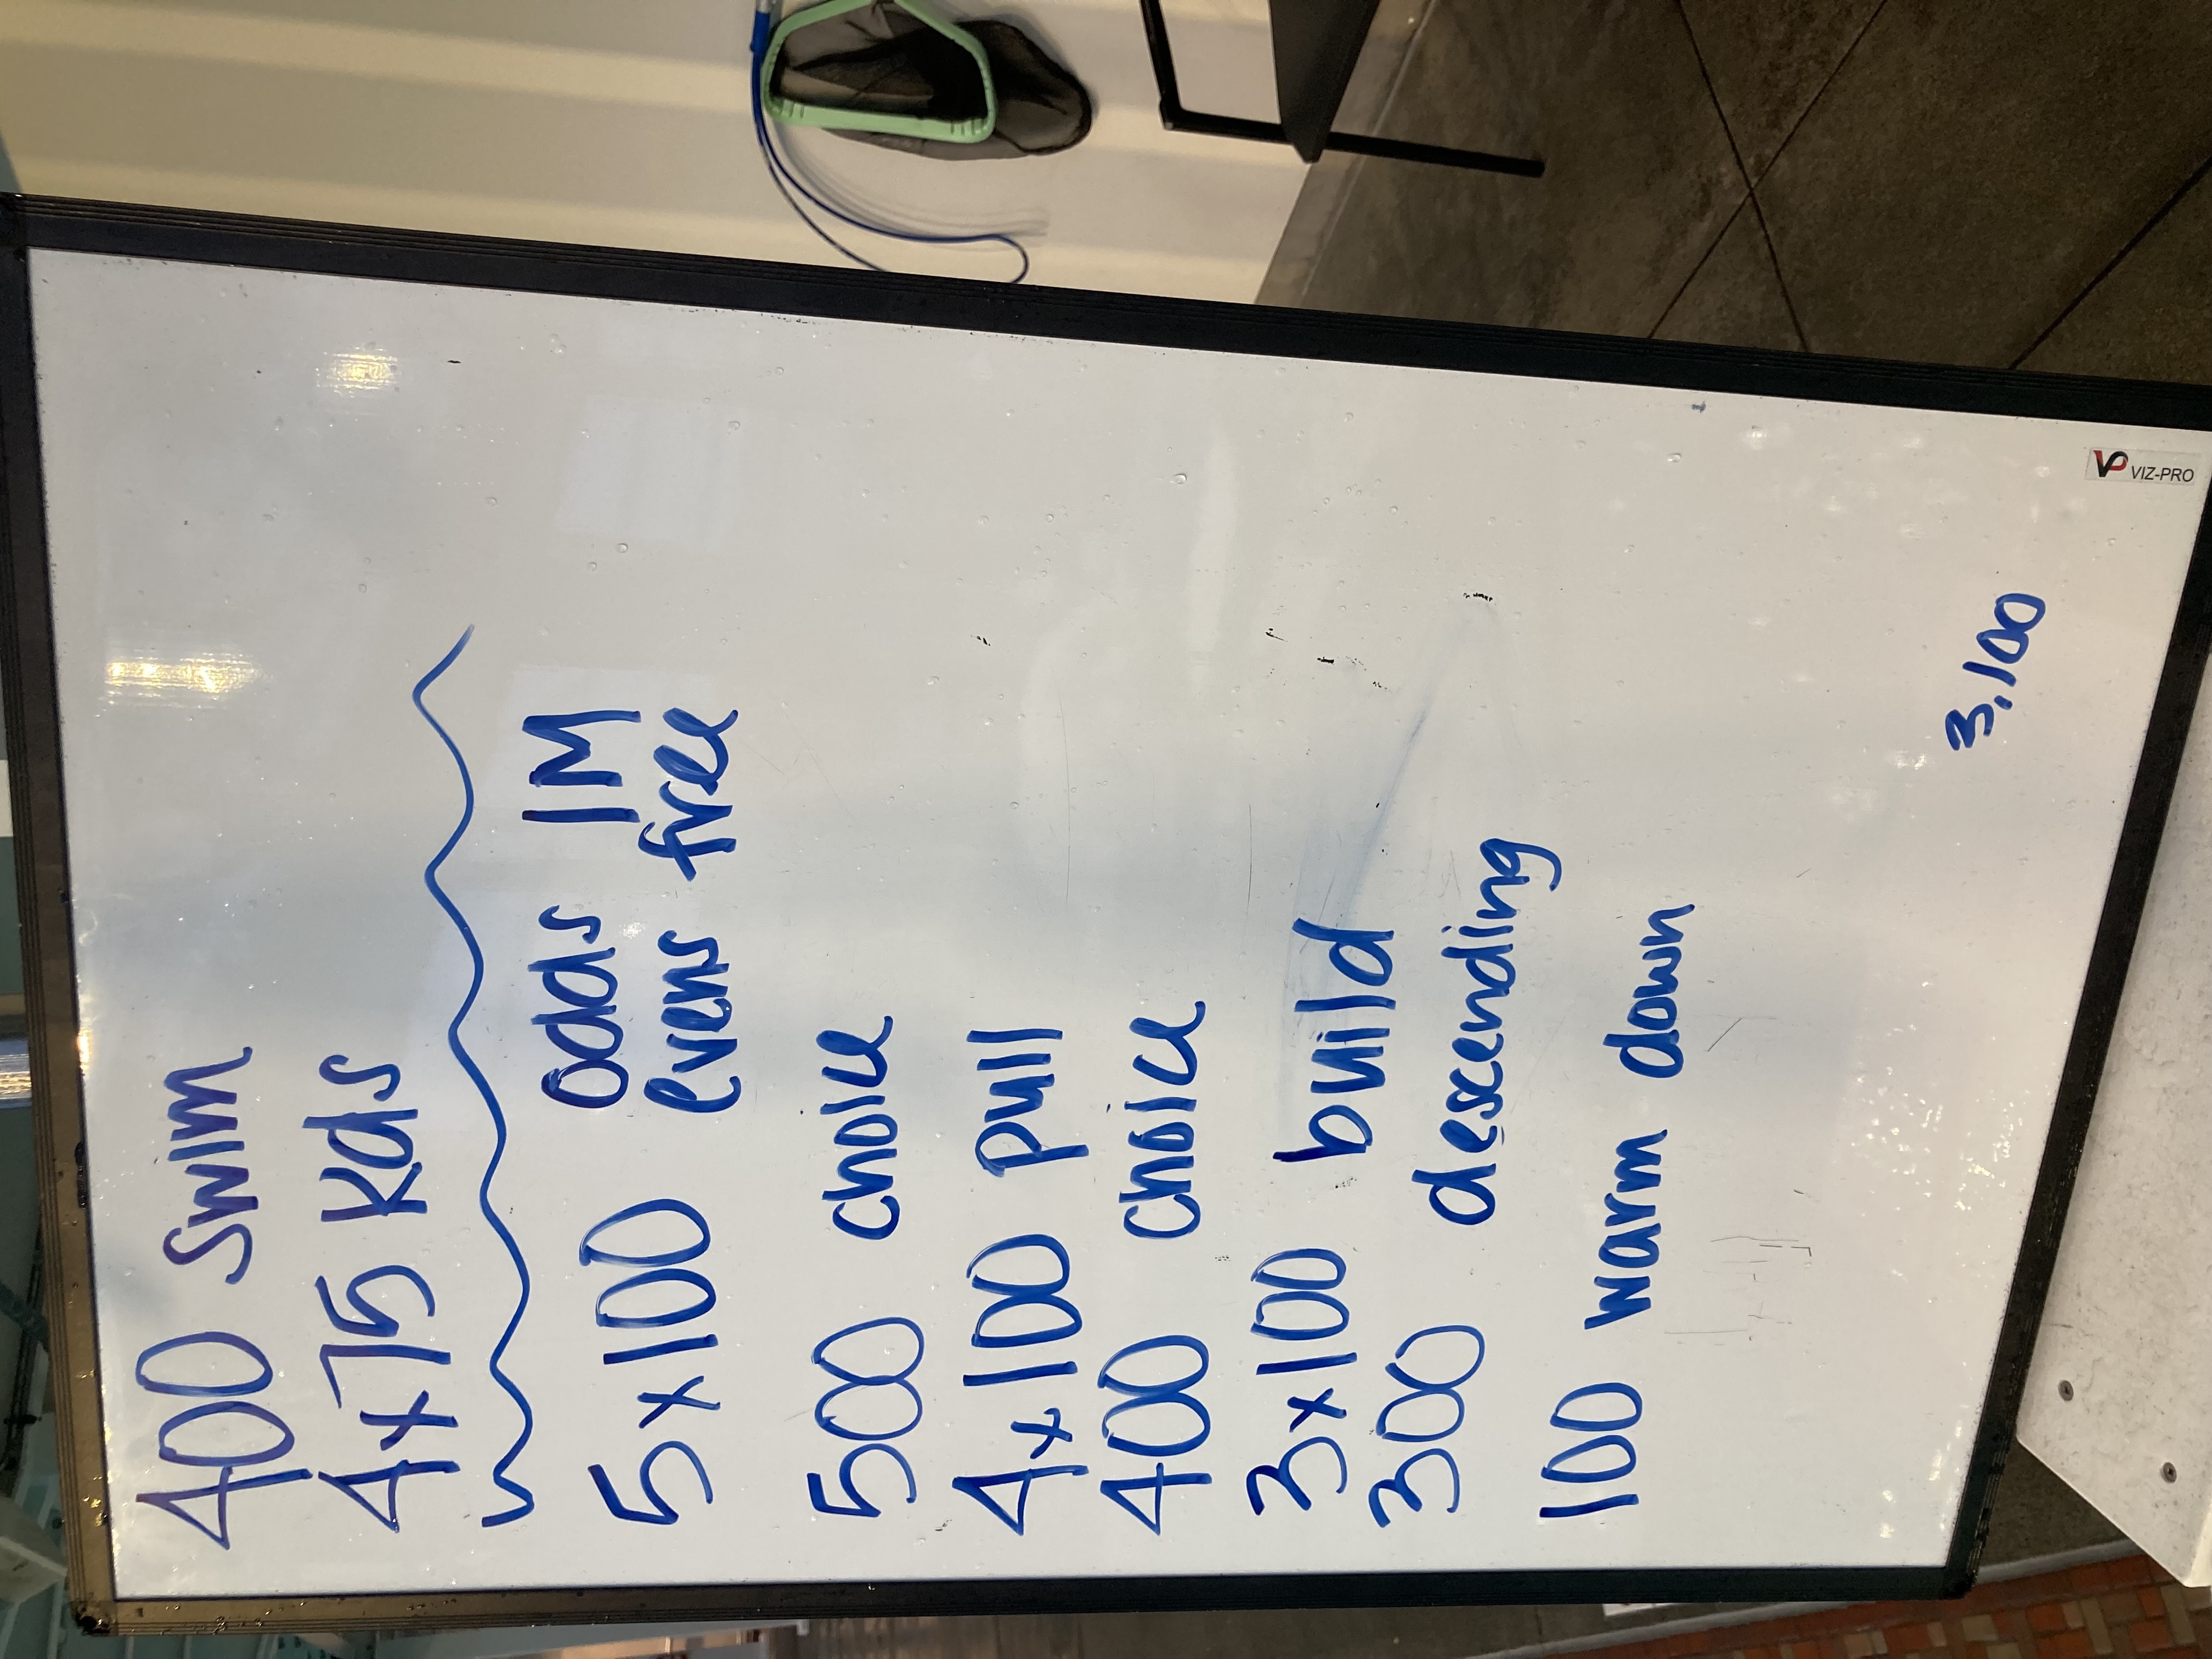 400 swim
4x75 kds
5x100 odds IM
evens free
500 choice
4x100 pull
400 choice
3x100 build
300 descending
100 warm down
3,100
VP VIZ-PRO